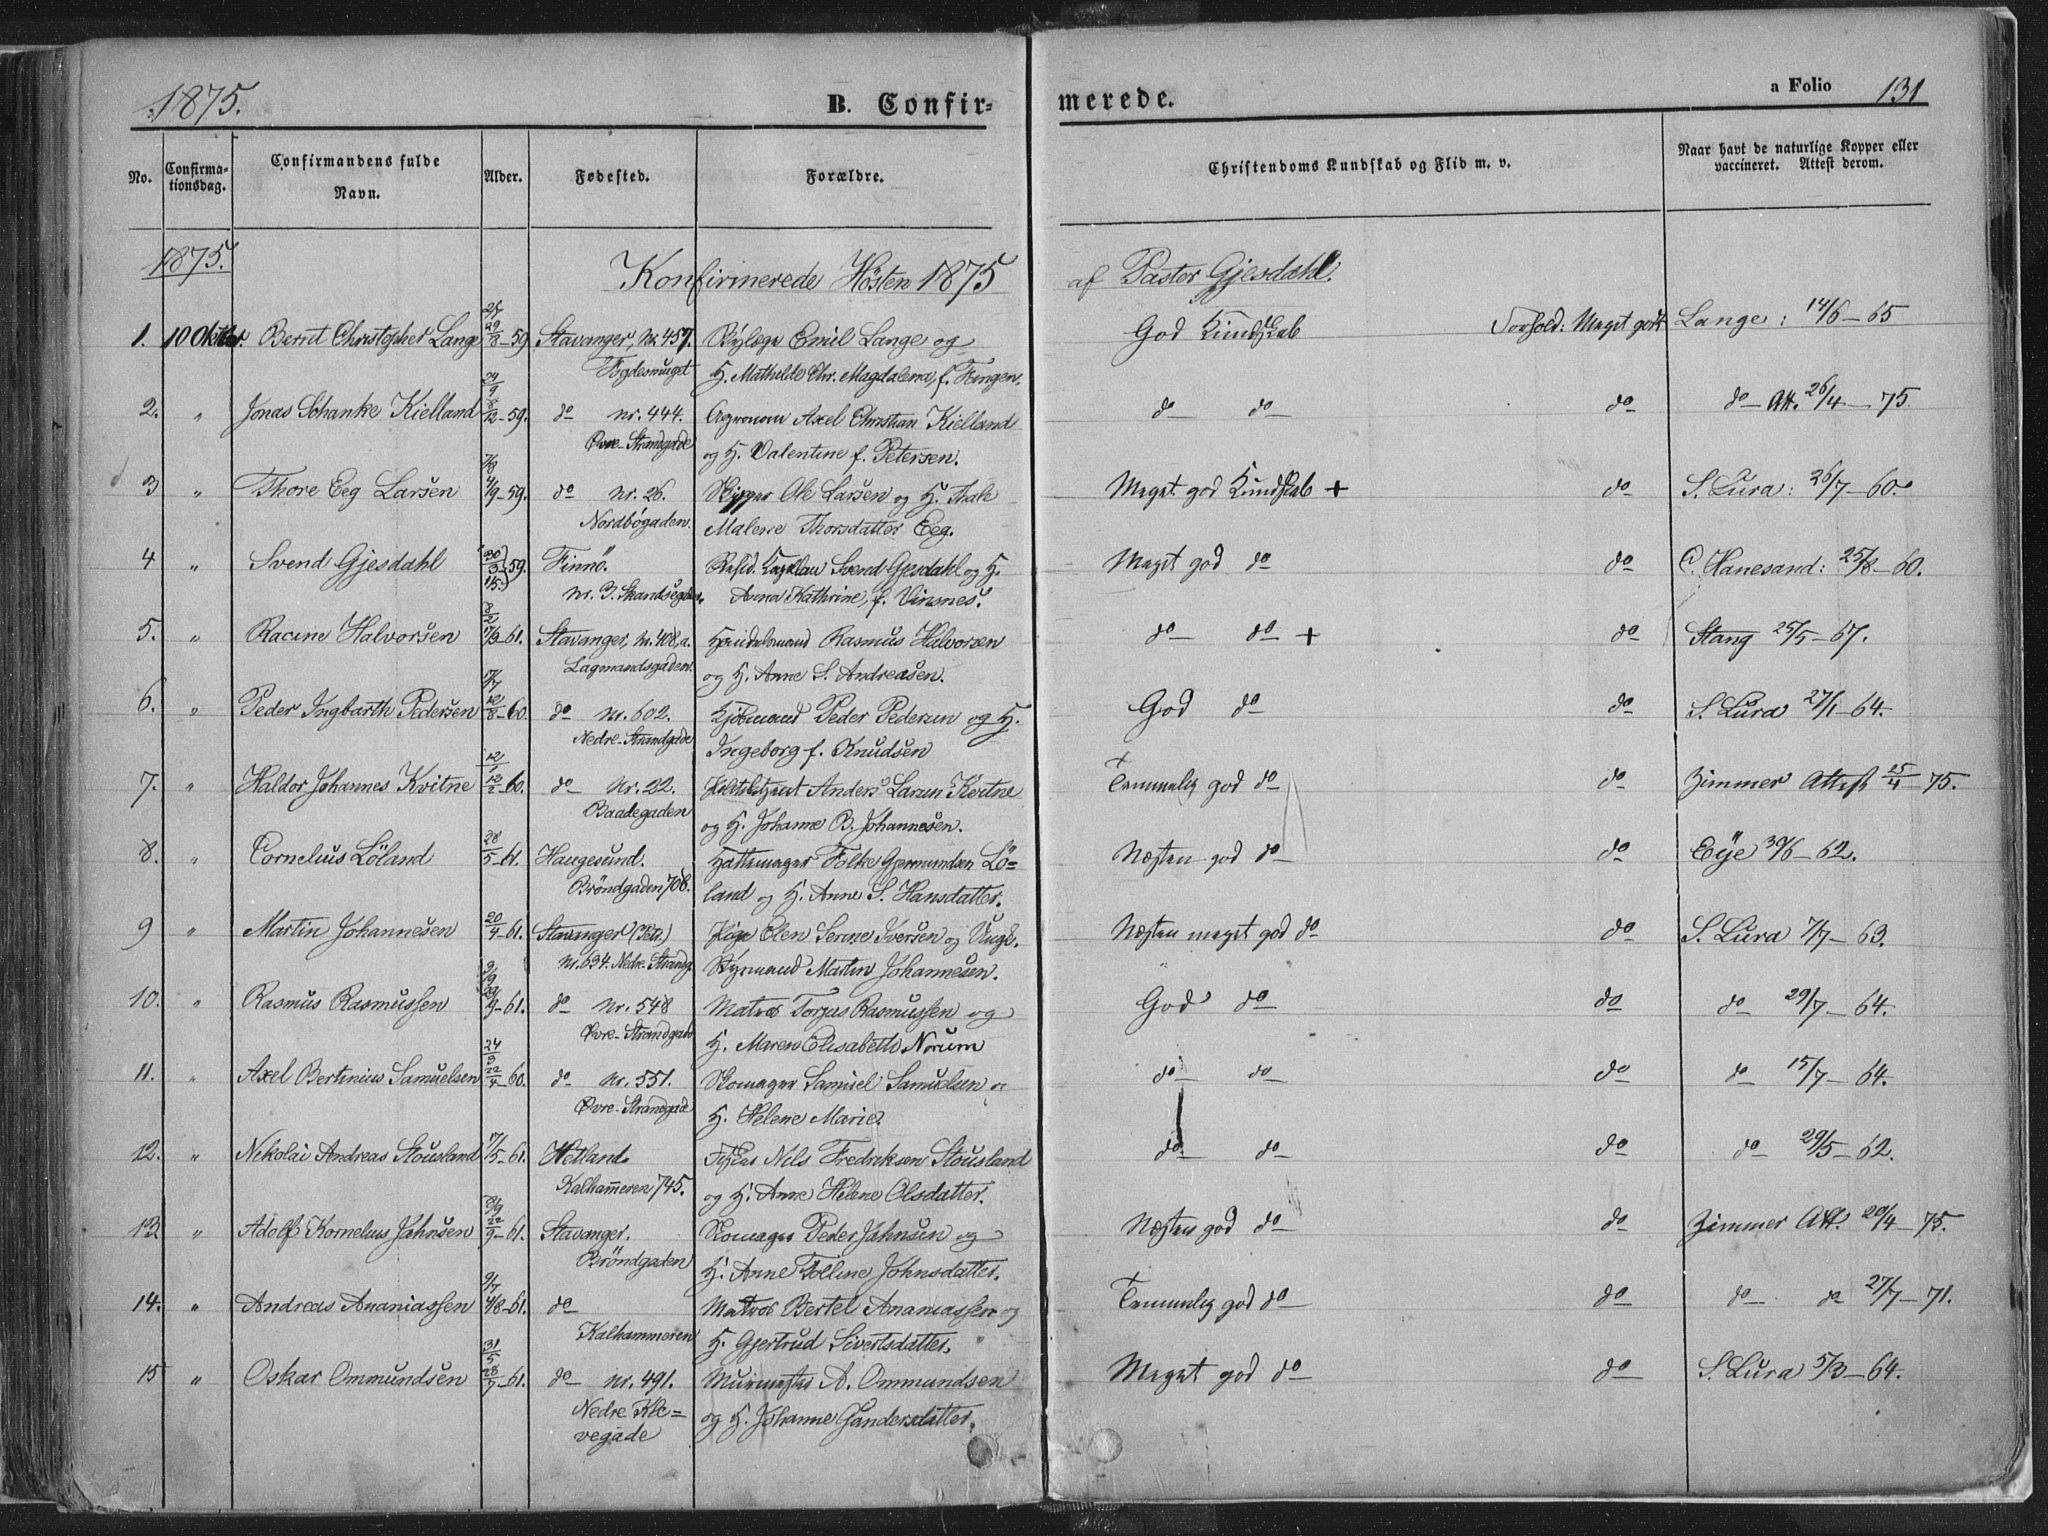 1875.
B. Confirmerede.
a Folio 131
No.
Confirmationsdag.
Confirmandens fulde Navn.
Alder.
Fødested.
Forældre.
Christendoms Kundskab og Flid m. v.
Naar havt de naturlige Kopper eller vaccineret. Attest derom.
1875.
Konfirmerede Hösten 1875 af Pastor Gjesdahl.
1. 10 Oktber Bernt Christopher Lange 29/8-59 Stavanger, Nr. 457. Emil Lange og God Kundskab Forhold: Meget godt Lange: 14/6-65
Fogdesmuget H. Mathilde Chr. Magdalena, f.
24/9
2. " Jonas Schanke Kielland 8/12-59. do nr. 444. Agronom Axel Christian Kielland do do do do Att. 26/4-75.
Øvre-Strandgade og H. Valentine f. Petersen.
7/8
3 " Thore Eeg Larsen 4/9-59. do nr. 26. Skipper Ole Larsen og H. Thale Meget god Kundskab + do S. Lura: 26/7-60.
Nordbögaden. Malene Thorsdatter Eeg.
4 " Svend Gjesdahl 30/3 59. Finnö. Resid. Kapellan Svend Gjesdahl og H. Meget god do do C. Hanesand: 25/8-60.
nr. 3. Skandsegaden. Anna Kathrine, f. Vinsnes.
8/2
5. " Racine Halvorsen 17/3-61. Stavanger, nr. 408, a. Handelsmand Rasmus Halvorsen do do + do Stang 25/5-67.
Lagmandsgaden. og H. Anne S. Andreasen.
17/7
6. " Peder Ingbarth Pedersen 12/8-60. do nr. 602. Kjöbmand Peder Pedersen og H. God do do S. Lura 27/1-64.
Nedre-Strandgade Ingeborg f. Knudsen
12/1
7. " Haldor Johannes Kvitne 12/2-60. do Nr. 22. Anders Larsen Kvitne Temmelig god do do Zimmer Attest 25/4-75.
Baadegaden og H. Johanne B. Johannesen.
8. " Cornelius Löland 28/5-61. Haugesund. Hattemager Folke Gjermundsen Lö- Næsten god do do Eye 30/6-62.
Bröndgaden 708. land og H. Anne S. Hansdatter.
9 " Martin Johannesen 20/4-61. Stavanger (Petr.) Pige Elen Serene Iversen og Ungk. Næsten meget god do do S. Lura 7/7-63.
nr. 634. Nedre-Strandg. Styrmand Martin Johannesen.
10. " Rasmus Rasmussen 29/9-61. do nr. 548 Matros Torjus Rasmussen og God do do do 29/7-64.
Øvre-Strandgade H. Maren Elisabeth Norum
24/9
11. " Axel Bertinius Samuelsen 22/4-60. do nr. 551. Skomager Samuel Samuelsen og do do do do 15/7-64.
Øvre-Strandgade H. Helene Marie.
12. " Nikolai Andreas Stousland 17/5-61. Hetland. Nils Fredriksen Stousland do do do do 29/5-62.
Kalhammeren 745. og H. Anne Helene Olsdatter.
13 " Adolf Kornelius Jahnsen 22/9-61. Stavanger. Skomager Peder Jahnsen og Næsten god do do Zimmer Att. 20/4-75.
Bröndgaden H. Anne Tolline Johnsdatter.
9/7
14. " Andreas Ananiassen 4/8-61. do Matros Bertel Ananiassen og Temmelig god do do do do 27/7-71.
Kalhammeren H. Gjertrud Sivertsdatter.
31/5
15 " Oskar Ommundsen 28/7-61. do nr. 491. Murmester A. Ommundsen Meget god do do S. Lura 5/3-64.
Nedre Kle= og H. Johanne Gandersdatter.
vegade